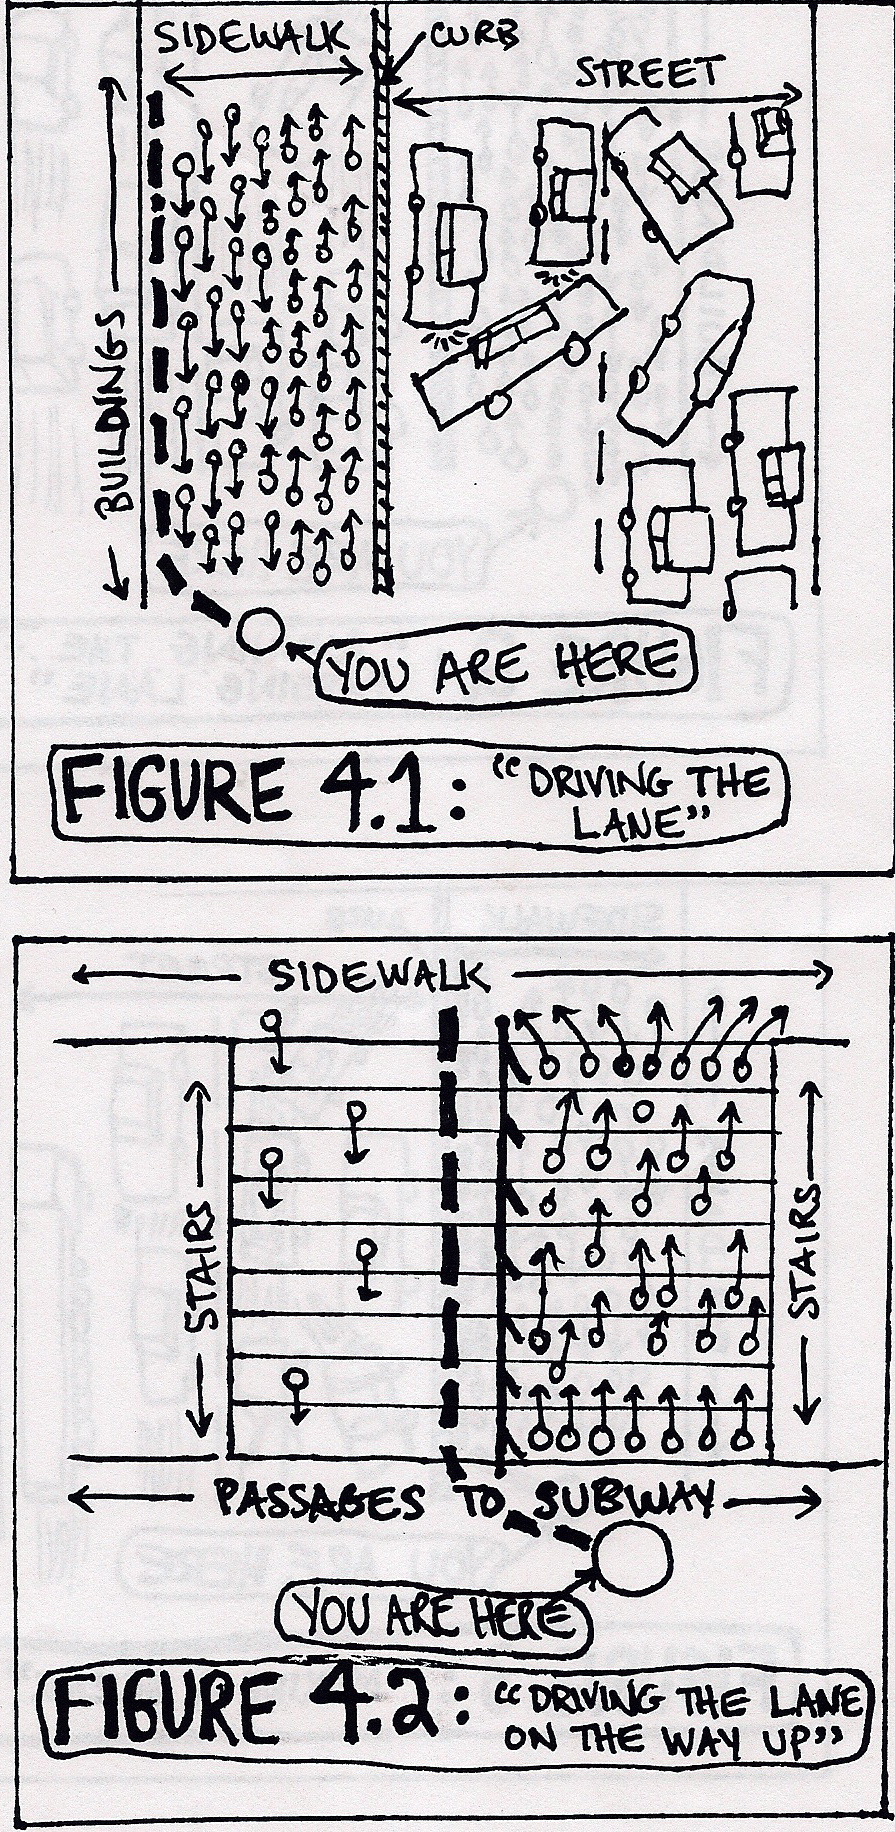 SIDEWALK
CURB
STREET
BUILDINGS
YOU ARE HERE
FIGURE 4.1: "DRIVING THE
LANE"
SIDEWALK
STAIRS
STAIRS
PASSAGES TO SUBWAY
YOU ARE HERE
FIGURE 4.2: "DRIVING THE LANE
ON THE WAY UP"